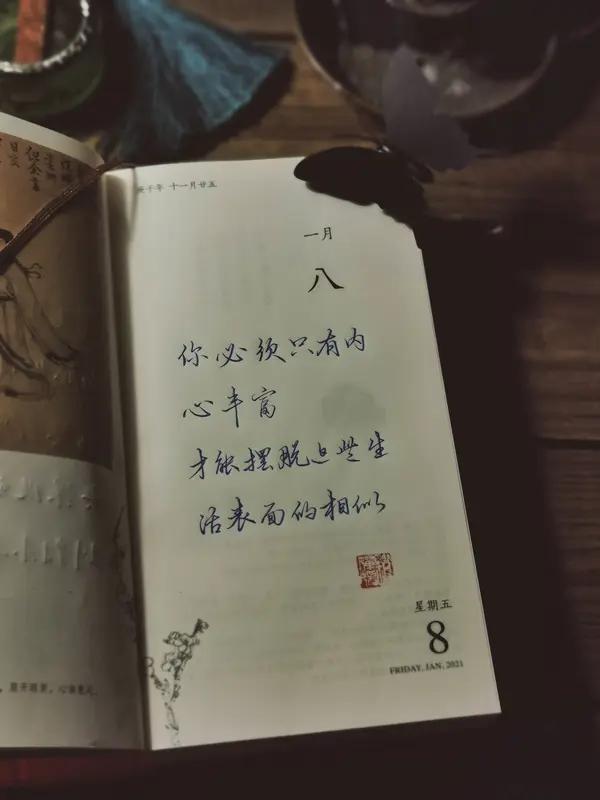 庚子年 十一月廿五
一月
八
你必须只有内
心丰富
才能摆脱这些生
活表面的相似
星期五
8
FRIDAY, JAN, 2021